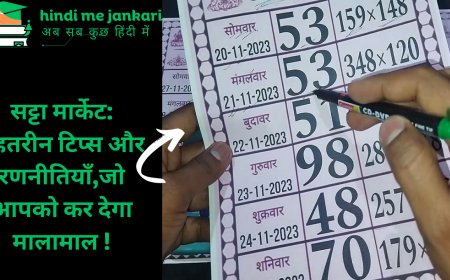 hindi me jankari
अब सब कुछ हिंदी में
सट्टा मार्केट:
हतरीन टिप्स और
रणनीतियाँ,जो
आपको कर देगा
मालामाल !
सोमवार
20-11-2023
53
159×148
मंगलवार
21-11-2023
53
348×120
बुदावर
22-11-2023
51
गुरुवार
23-11-2023
98
28
शुक्रवार
24-11-2023
48
257
शनिवार
70
179×